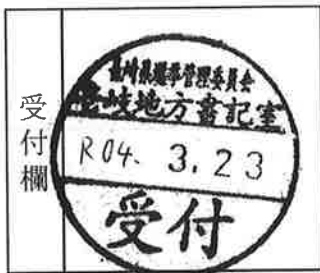 受付欄
長崎県選挙管理委員会
壱岐地方書記室
R04. 3.23
受付